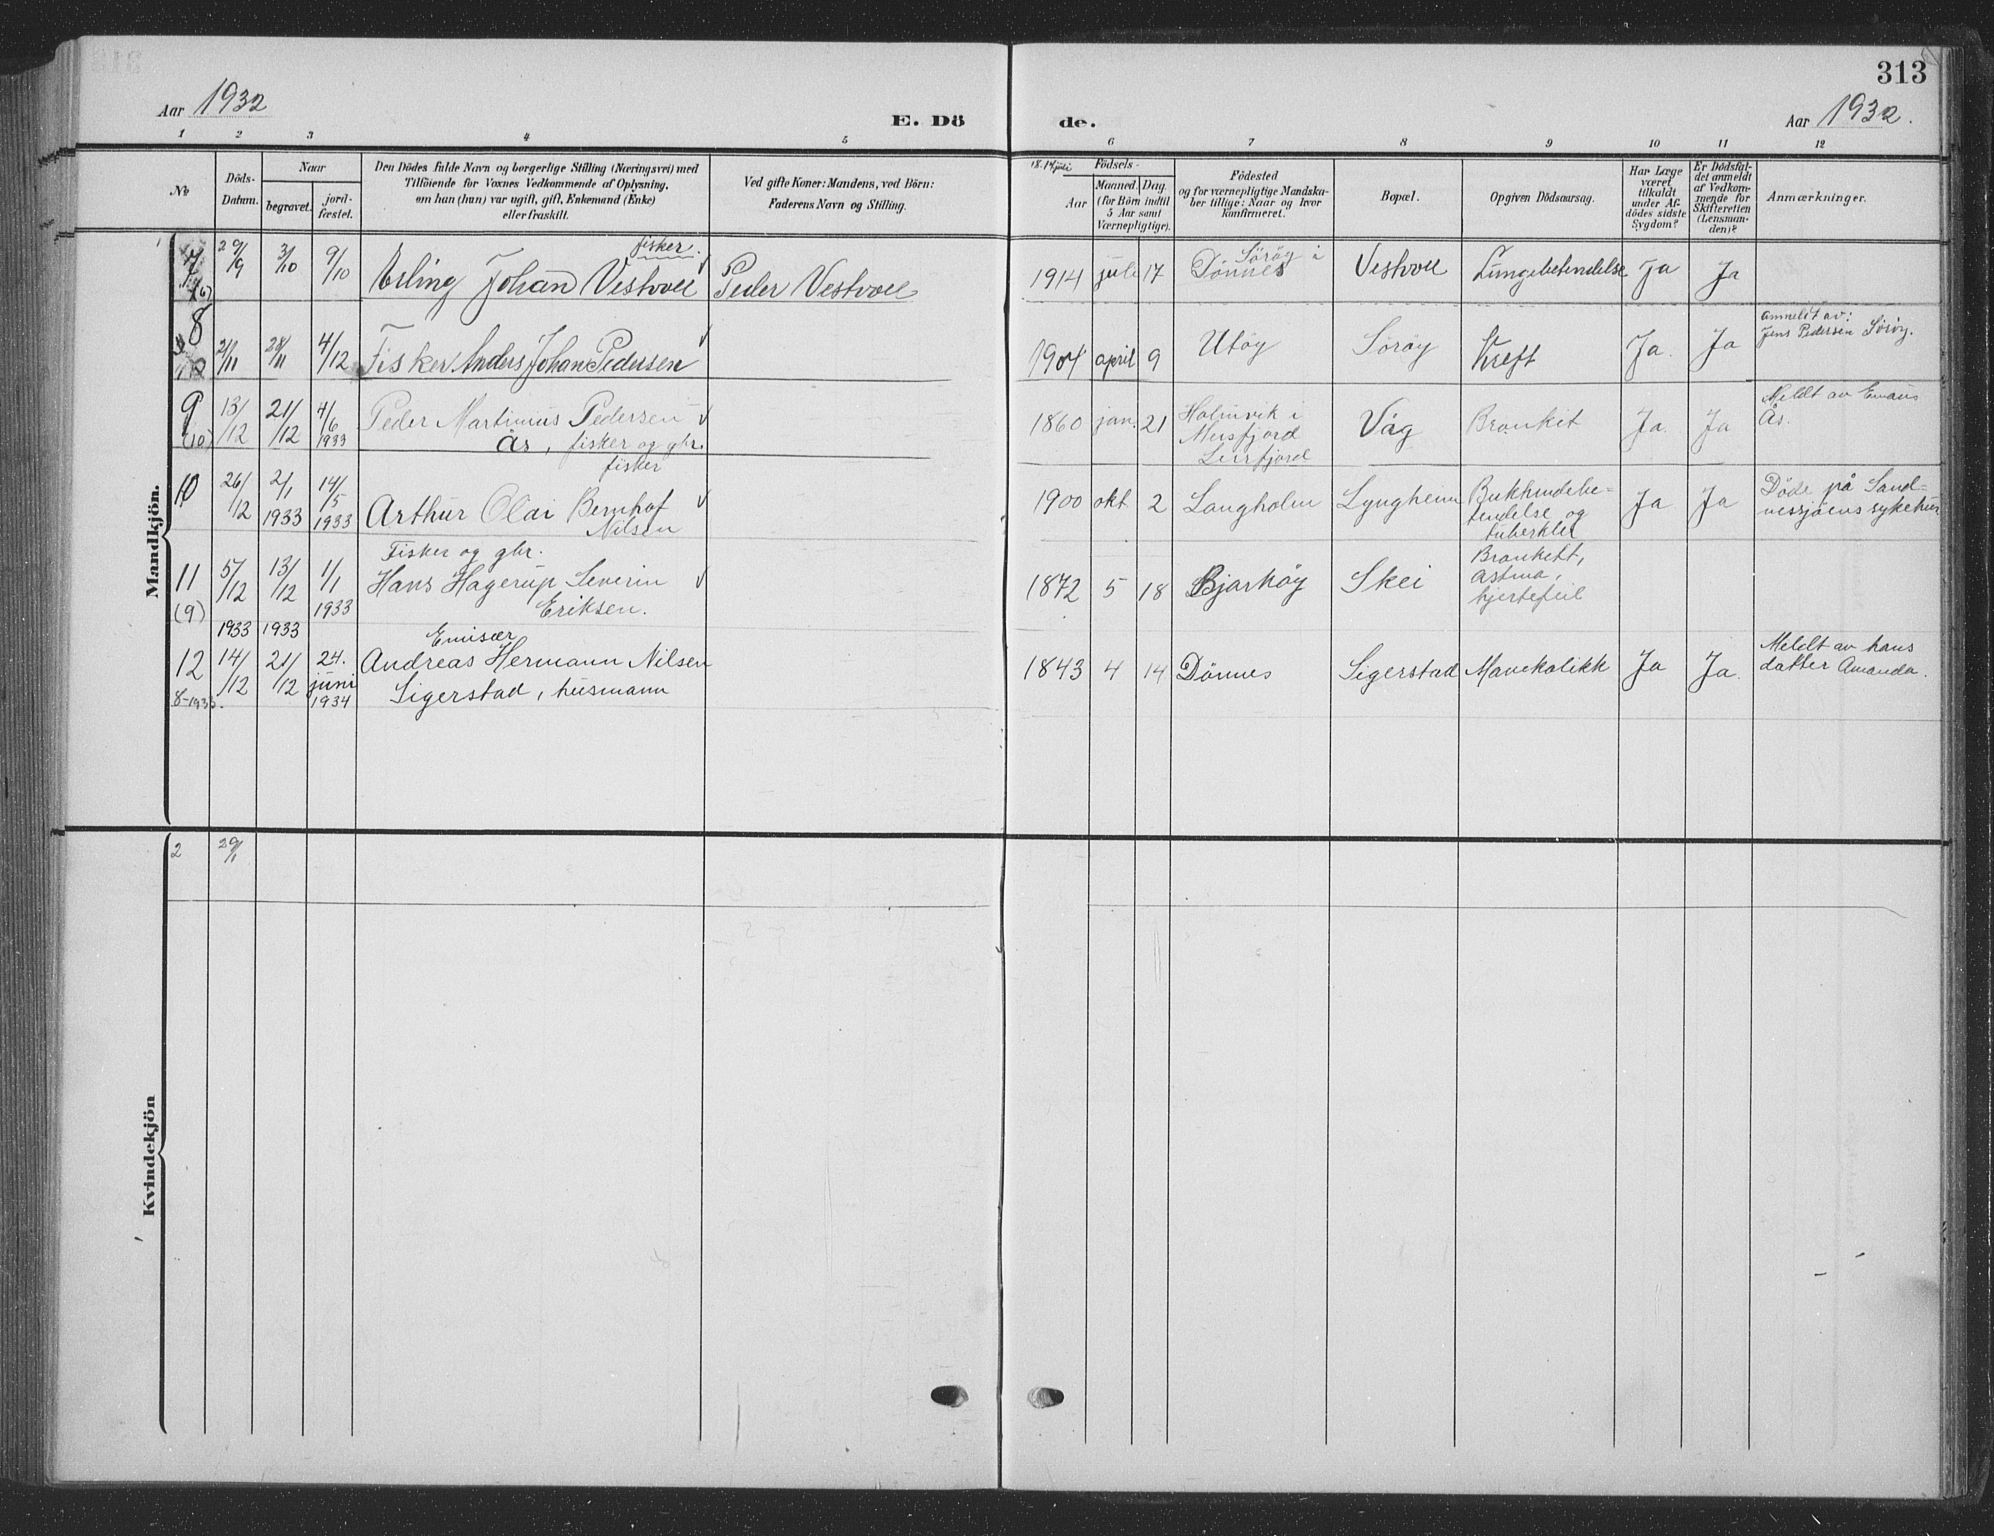 313
Aar 1932
E. Dö
de.
Aar 1932.
1 2 3 4 5 6 7 8 9 10 11 12
No
Döds-
Datum.
Naar
begravet.
jord-
fæstet.
Den Dödes fulde Navn og borgerlige Stilling (Næringsvei) med
Tilföiende for Voxnes Vedkommende af Oplysning,
om han (hun) var ugift, gift, Enkemand (Enke)
eller fraskilt.
Ved gifte Koner: Mandens, ved Börn:
Faderens Navn og Stilling.
Födsels-
Aar
Maaned. Dag.
(for Börn indtil
5 Aar samt
Værnepligtige).
Födested
og for værnepligtige Mandska-
ber tillige: Naar og hvor
konfirmeret.
Bopæl.
Opgiven Dödsaarsag.
Har Læge
været
tilkaldt
under Af-
dödes sidste
Sygdom?
Er Dödsfal-
det anmeldt
af Vedkom-
mende for
Skifteretten
(Lensman-
den)?
Anmærkninger.
Mandkjön.
7 29/9 3/10 9/10 fisker.
Erling Johan Vestvoll Peder Vestvoll 1914 juli 17 Sörøy i
Dønnes Vestvoll Lungebetendelse Ja Ja
8 21/11 28/11 4/12 Fisker Anders Johan Pedersen 1904 april 9 Utøy Sørøy Kreft Ja. Ja anmeldt av:
Jens Pedersen Sørøy.
9 13/12 21/12 4/6 1933 Peder Martinius Pedersen
(10) Ås, fisker og gbr. 1860 jan. 21 Holmvik i
Meisfjord
Leirfjord Våg Bronkit Ja. Ja Meldt av Emaus
Ås.
10 26/12 2/1 1933 14/5 1933 fisker
Arthur Olai Bernhof
Nilsen 1900 okt. 2 Langholm Lyngheim Bukhindebe-
tendelse og
tuberkler Ja Ja Døde på Sand-
nessjøens sykehus
11 5/12 13/12 1/1 1933 Fisker og gbr.
Hans Hagerup Severin
(9) Eriksen. 1872 5 18 Bjarkøy Skei Bronkitt,
astma,
hjertefeil
1933 1933 Emisær
12 14/12 21/12 24. juni 1934 Andreas Hermann Nilsen
Sigerstad, husmann 1843 4 14 Dønnes Sigerstad Mavekolikk Ja Ja. Meldt av hans
datter Amanda.
Kvindekjön
2 29/1